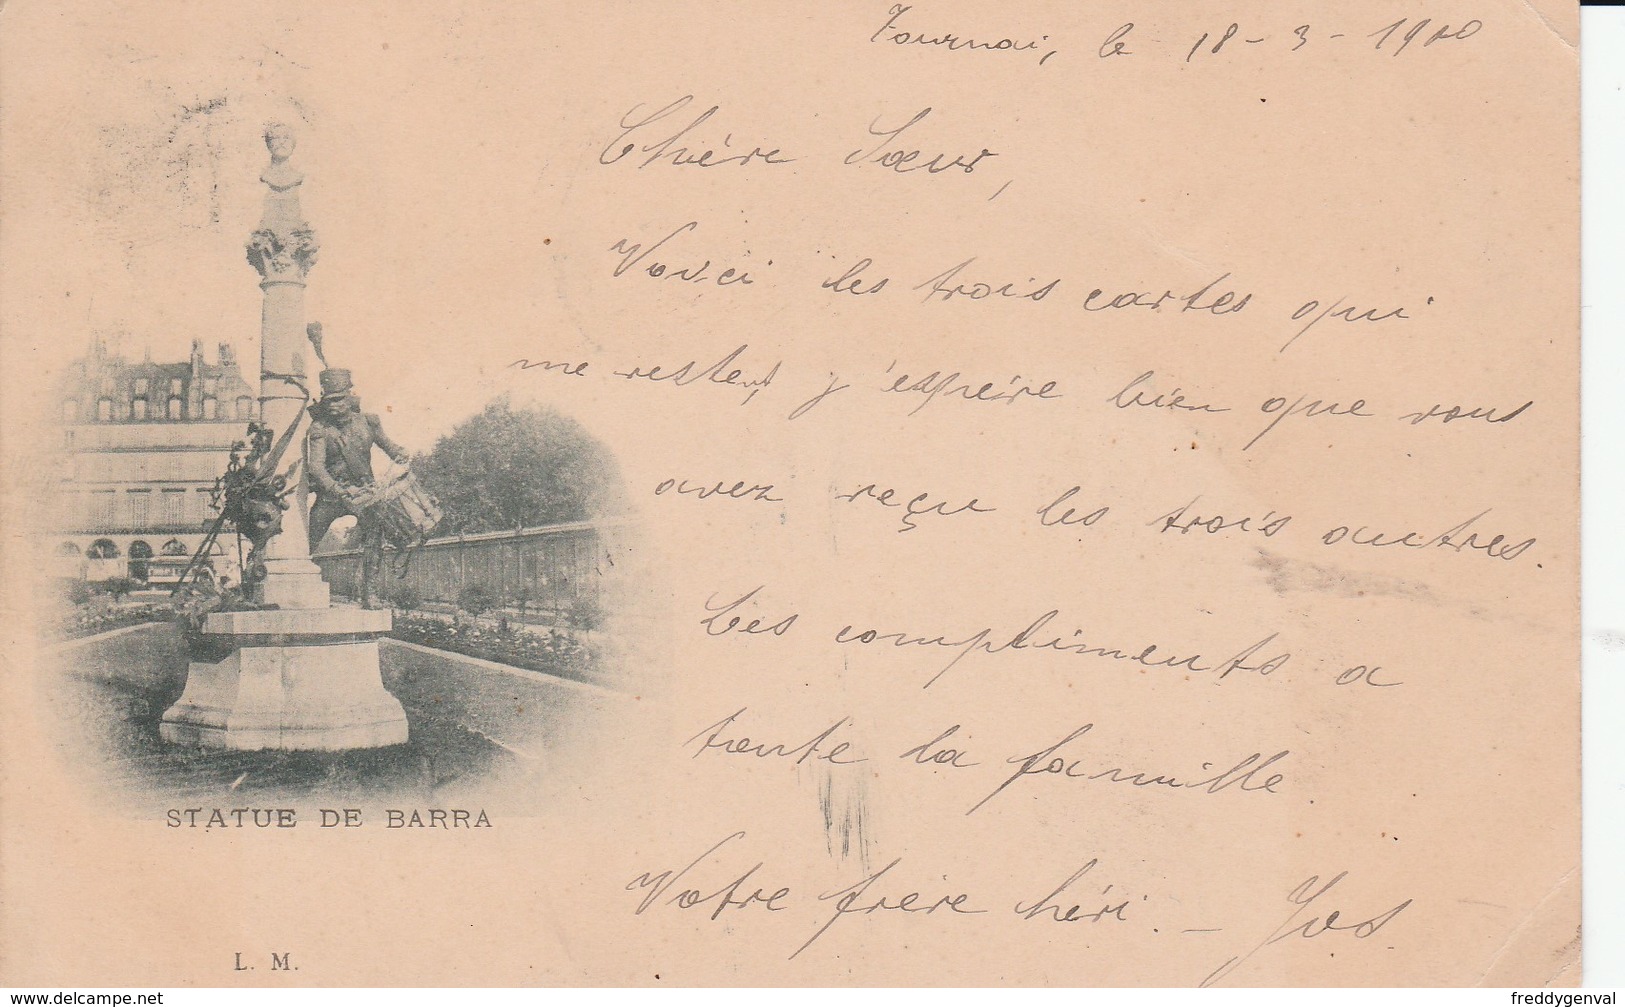 Tournai, le 18-3-1900
Chière Sœur,
Voici les trois cartes qui
me restent, j'espère bien que vous
avez reçu les trois autres.
Les compliments a
toute la famille.
Votre frère chéri. - Jos
STATUE DE BARRA
L. M.
www.delcampe.net
freddygenval